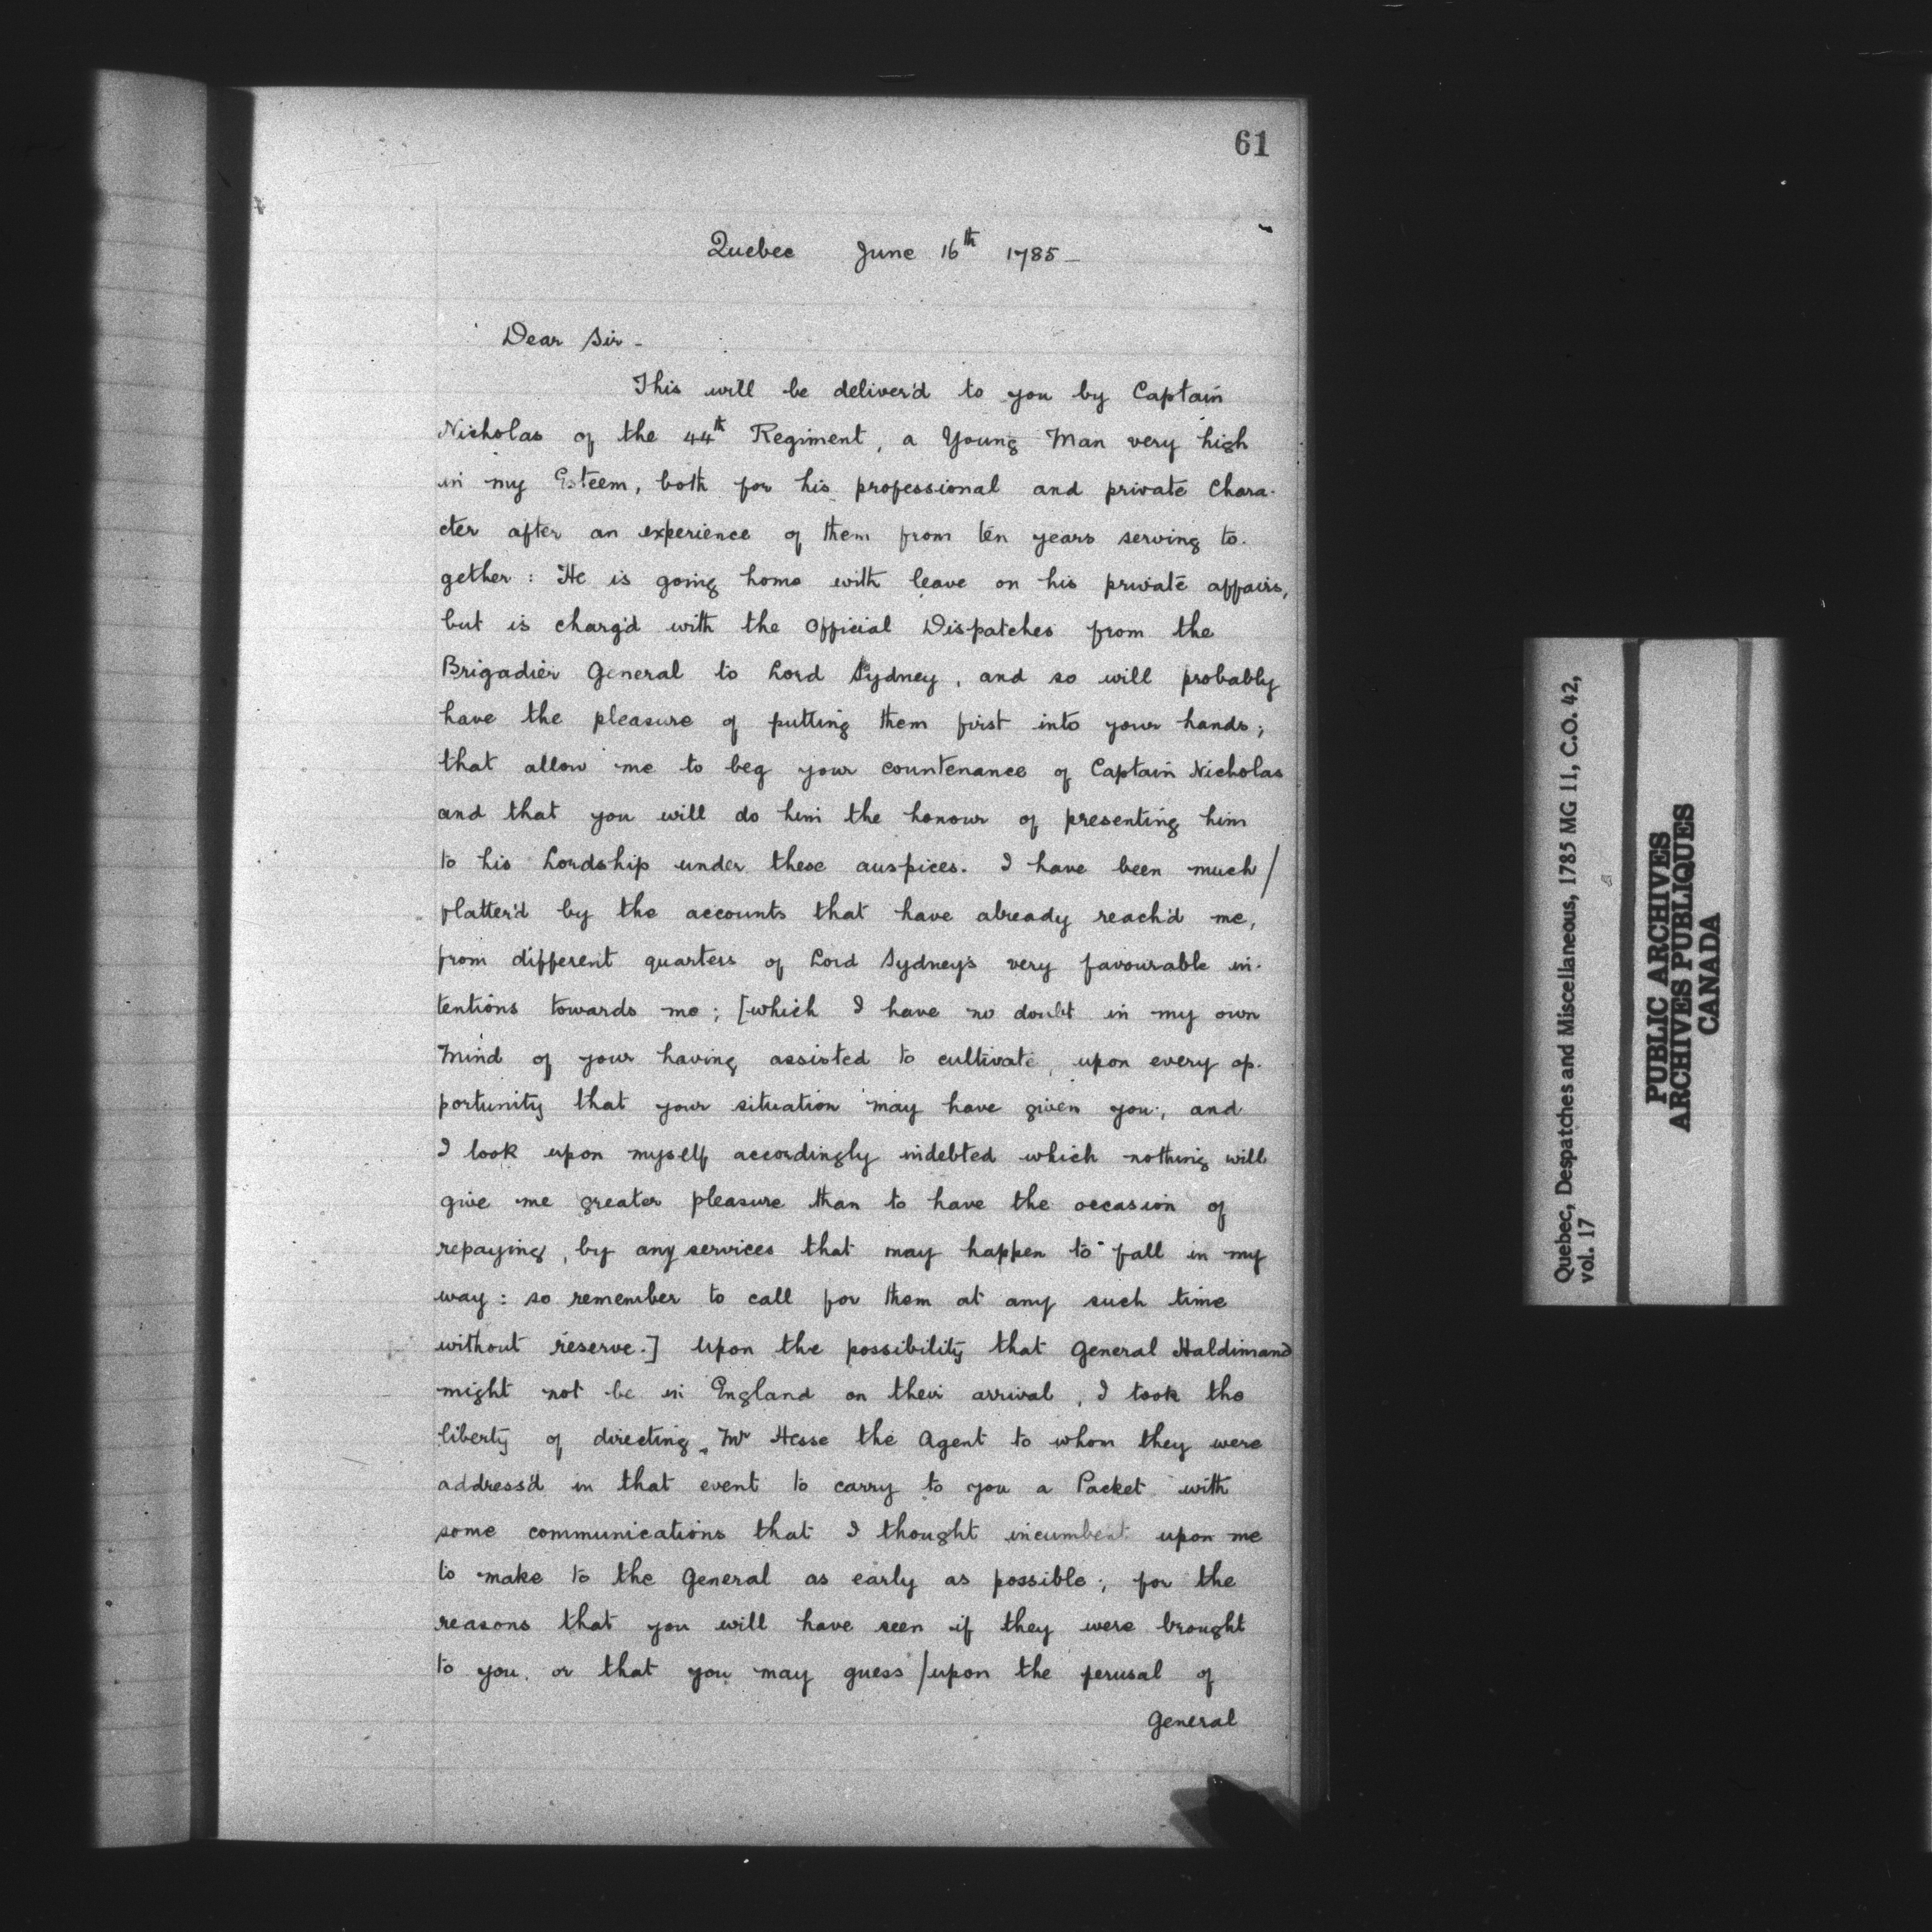 61
Quebec June 16th 1785_
Dear Sir -
This will be deliver'd to you by Captain
Nicholas of the 44th Regiment, a Young Man very high
in my Esteem, both for his professional and private Chara-
cter after an experience of them from ten years serving to-
gether : He is going home with leave on his private affairs,
but is charg'd with the Official Dispatches from the
Brigadier General to Lord Sydney, and so will probably
have the pleasure of putting them first into your hands;
that allow me to beg your countenance of Captain Nicholas
and that you will do him the honour of presenting him
to his Lordship under these auspices. I have been much/
flatter'd by the accounts that have already reach'd me,
from different quarters of Lord Sydney's very favourable in-
tentions towards me; [which I have no doubt in my own
Mind of your having assisted to cultivate, upon every op-
portunity that your situation may have given you; and
I look upon myself accordingly indebted which nothing will
give me greater pleasure than to have the occasion of
repaying, by any services that may happen to fall in my
way: so remember to call for them at any such time
without reserve.] Upon the possibility that General Haldimand
might not be in England on their arrival, I took the
liberty of directing Mr Hesse the Agent to whom they were
address'd in that event to carry to you a Packet with
some communications that I thought incumbent upon me
to make to the General as early as possible; for the
reasons that you will have seen if they were brought
to you, or that you may guess /upon the perusal of
General
Quebec, Despatches and Miscellaneous, 1785 MG 11, C.O. 42,
vol. 17
PUBLIC ARCHIVES
ARCHIVES PUBLIQUES
CANADA